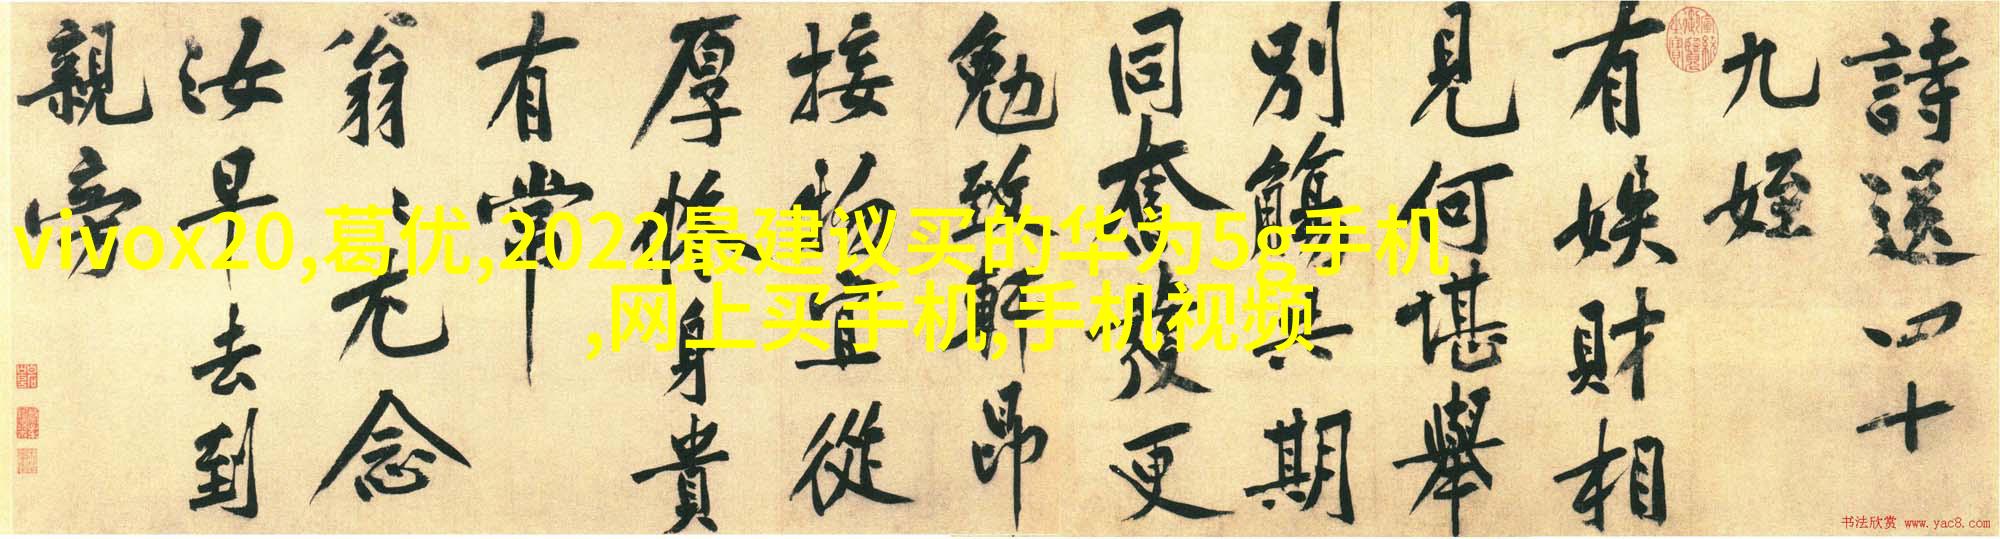 詩送四十
九姪
有娱財相
見何堪舉
別觴與期
同奮發更
勉致軒昂
接物宜從
厚懷身貴
有常
翁〻尤念
汝早去到
親旁
vivox20,葛优,2022最建议买的华为5g手机
,网上买手机,手机视频
书法欣赏 www.yac8.com